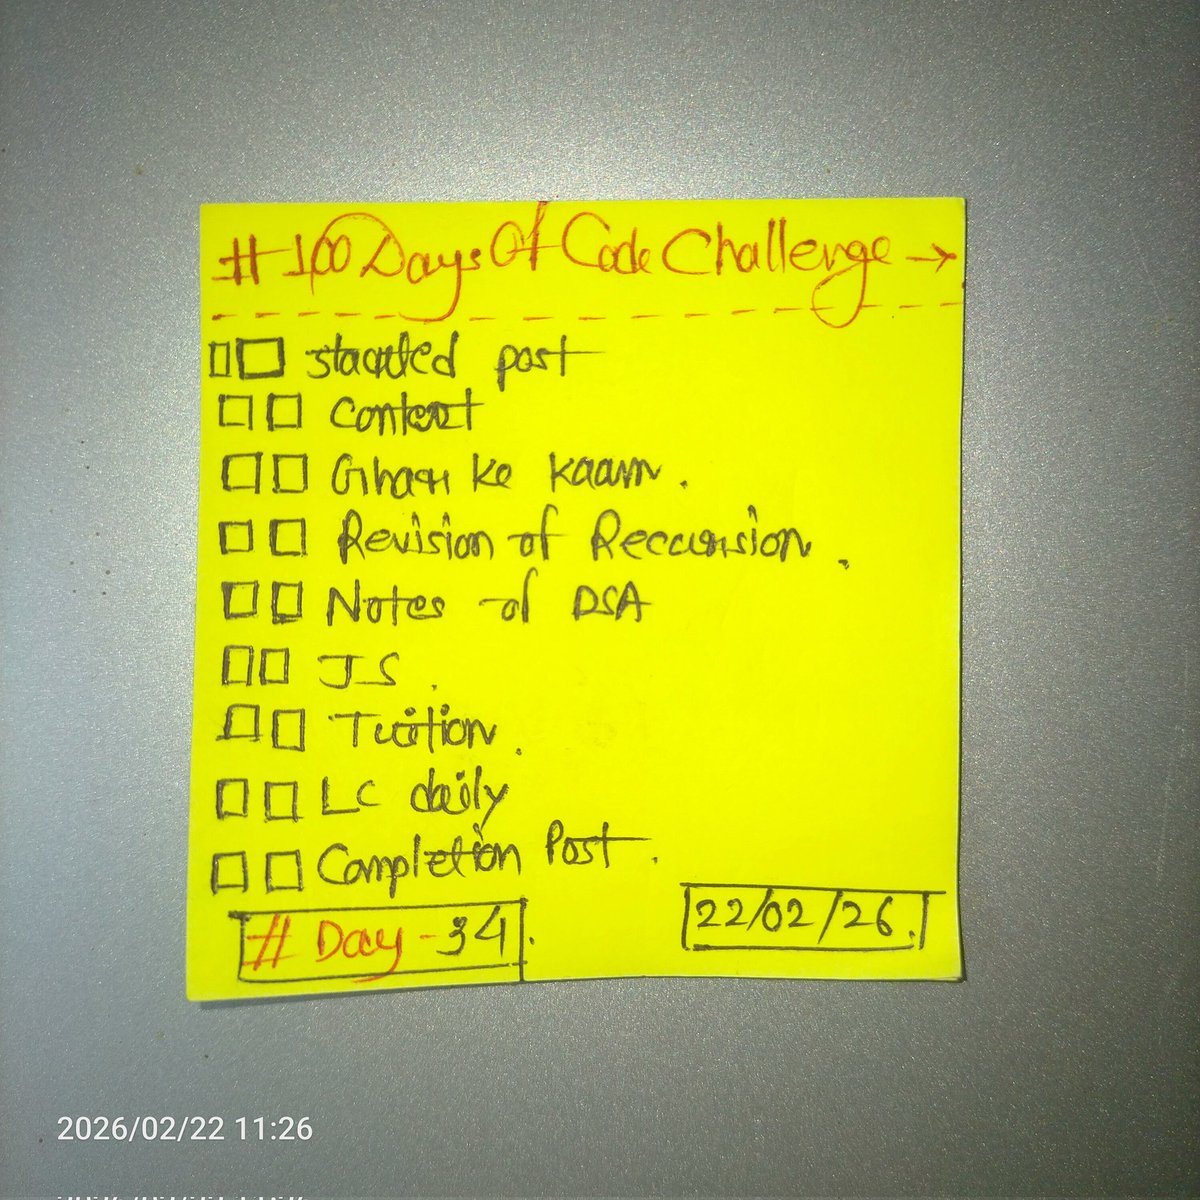 #100DaysOf Code Challenge →
started post
Content
Ghar ke kaam.
Revision of Recursion.
Notes of DSA
JS.
Tuition.
LC daily
Completion Post.
# Day - 34.
22/02/26.
2026/02/22 11:26